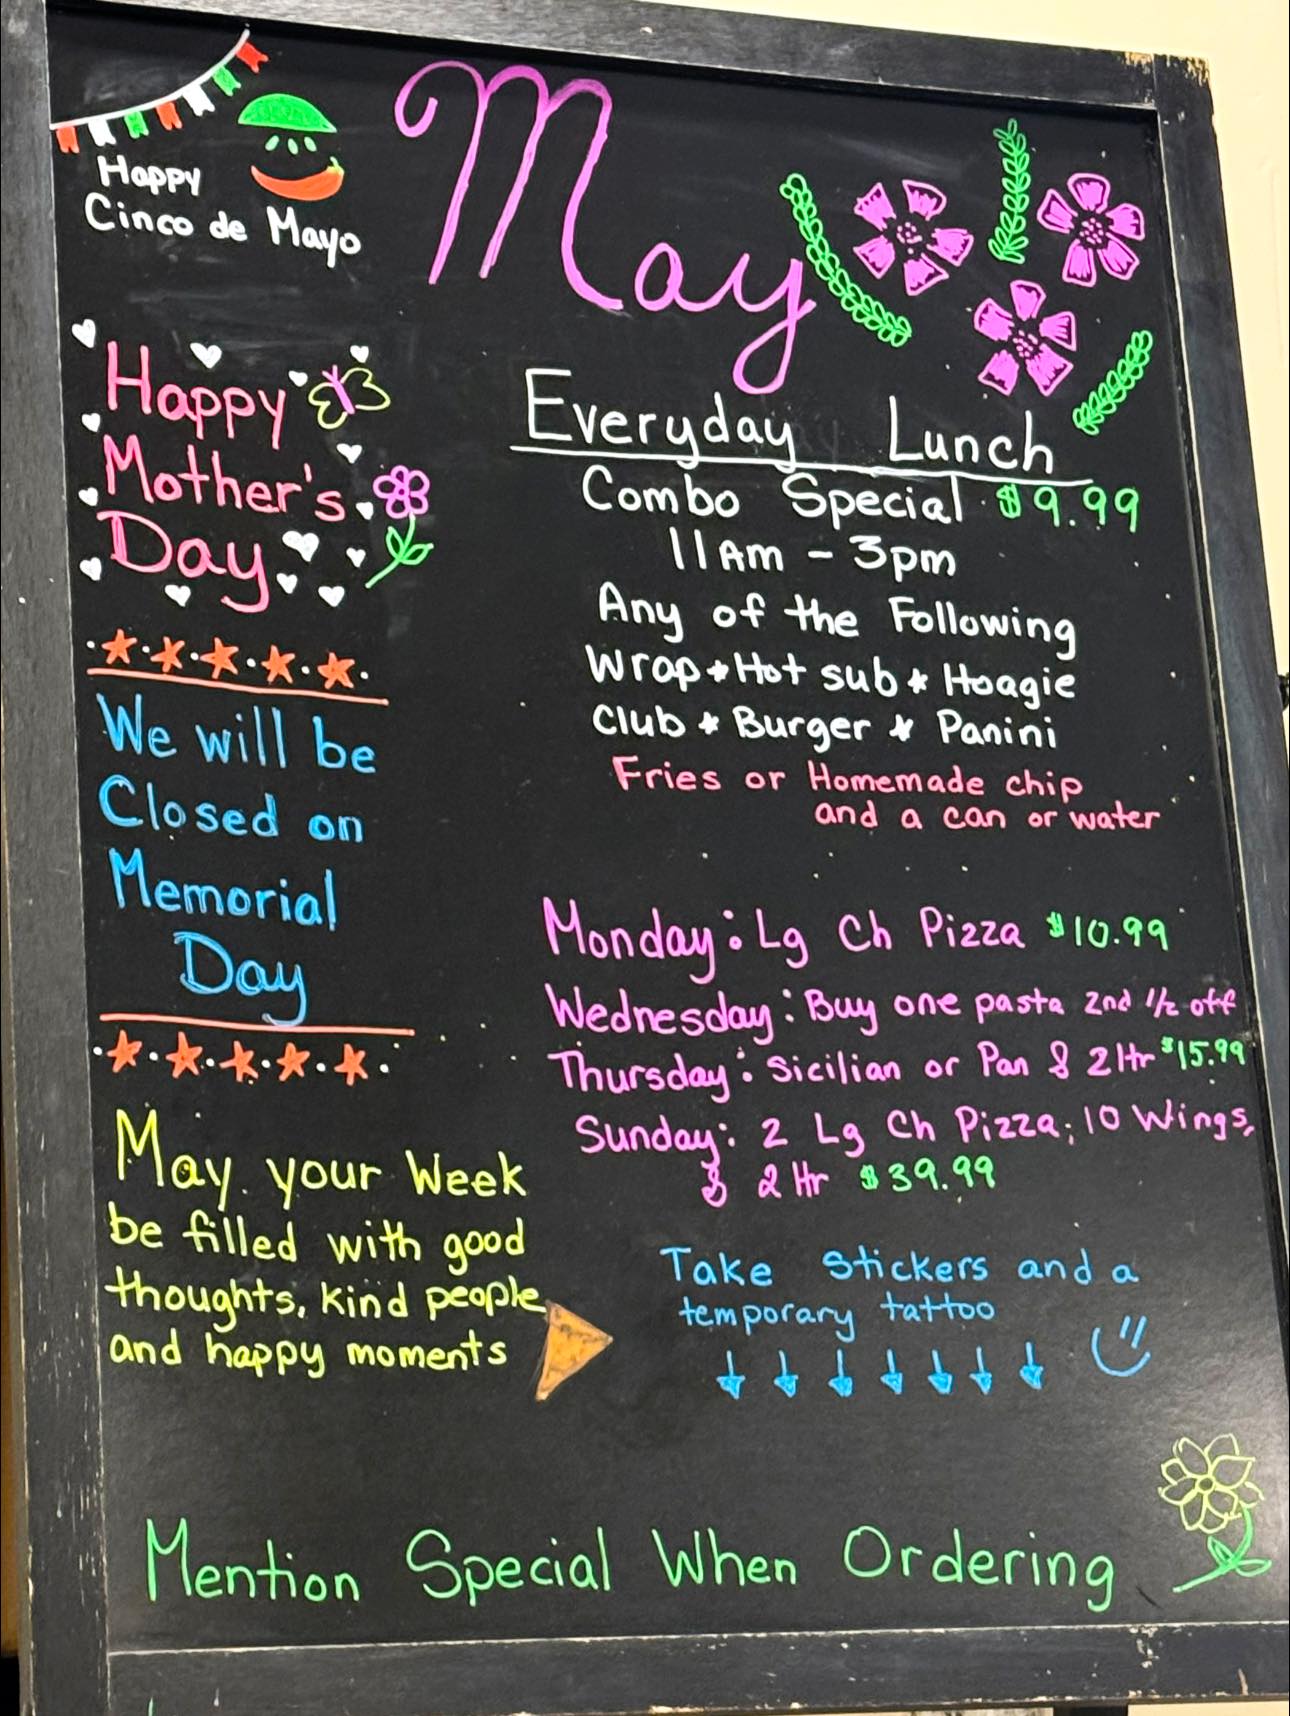 Happy
Cinco de Mayo
May
Happy
Mother's
Day
We will be
Closed on
Memorial
Day
May your Week
be filled with good
thoughts, kind people
and happy moments
Everyday Lunch
Combo Special $9.99
11Am - 3pm
Any of the Following
Wrap * Hot sub * Hoagie
Club * Burger * Panini
Fries or Homemade chip
and a can or water
Monday: Lg Ch Pizza $10.99
Wednesday: Buy one pasta 2nd 1/2 off
Thursday: Sicilian or Pan & 2 ltr $15.99
Sunday: 2 Lg Ch Pizza; 10 Wings,
& 2 ltr $39.99
Take stickers and a
temporary tattoo
Mention Special When Ordering